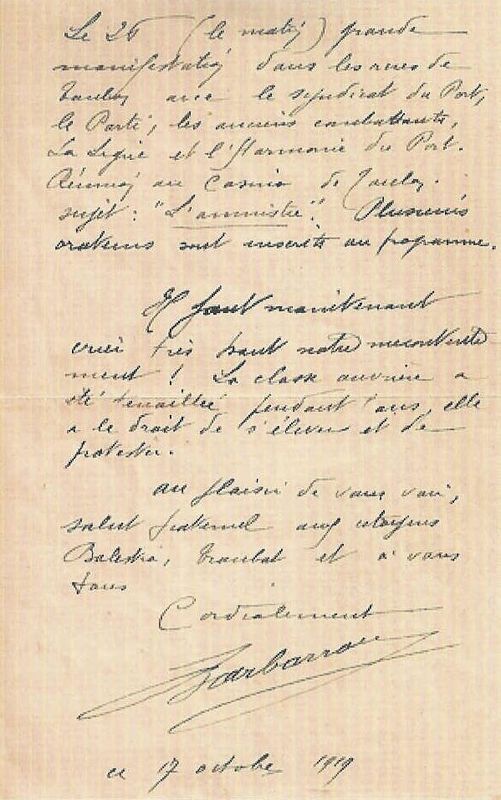 Le 26 (le matin) grande
manifestation dans les rues de
Toulon avec le syndicat du Port,
le Parti, les anciens combattants,
La Ligue et l'Harmonie du Port.
Réunion au Casino de Toulon.
sujet : "L'amnistie". Plusieurs
orateurs sont inscrits au programme.
Il faut maintenant
crier très haut notre mecontente
ment ! La classe ouvrière a
été tenaillée pendant ans, elle
a le droit de s'élever et de
protester.
au plaisir de vous voir,
salut fraternel aux citoyens
Balestra, et à vous
tous
Cordialement
Barbarroux
ce 17 octobre 1919